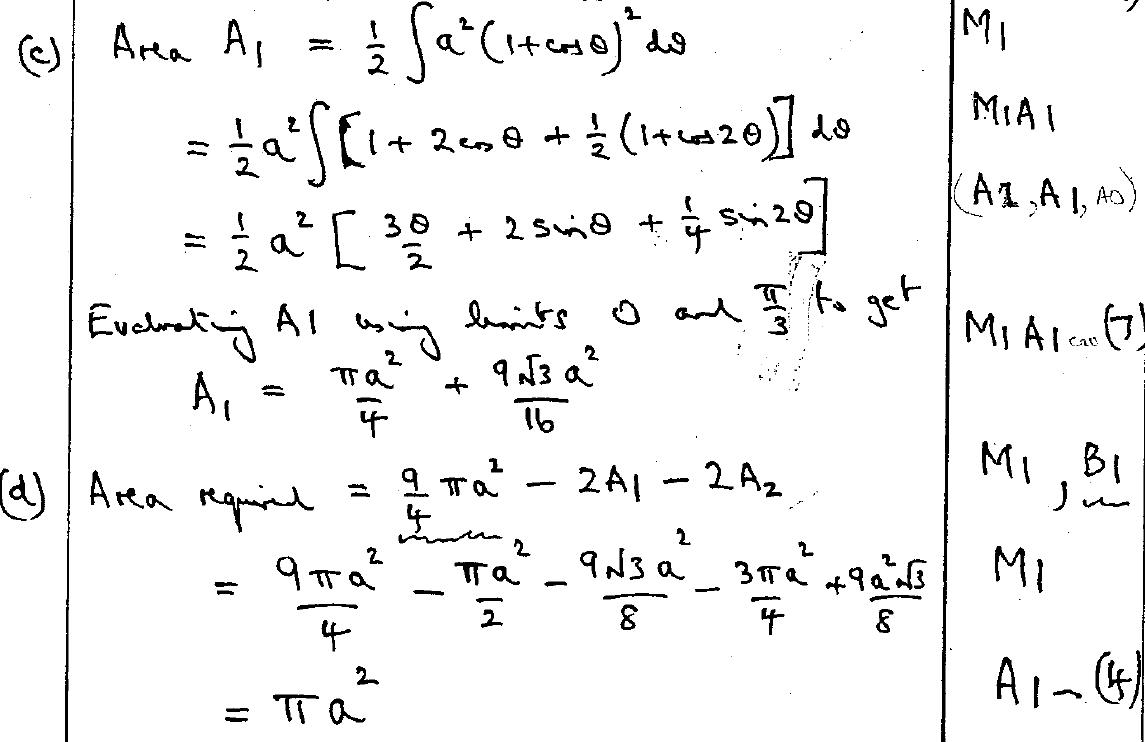 (c) Area A₁ = ½ ∫ a²(1+cosθ)² dθ M1
= ½ a² ∫ [1 + 2cosθ + ½(1+cos2θ)] dθ M1A1
= ½ a² [ 3θ/2 + 2sinθ + ¼ sin2θ ] (A1, A1, A0)
Evaluating A1 using limits 0 and π/3 to get M1 A1 cao (7)
A₁ = πa²/4 + 9√3 a²/16
(d) Area required = 9/4 πa² − 2A₁ − 2A₂ M1, B1
= 9πa²/4 − πa²/2 − 9√3 a²/8 − 3πa²/4 + 9a²√3/8 M1
= πa² A1 (4)